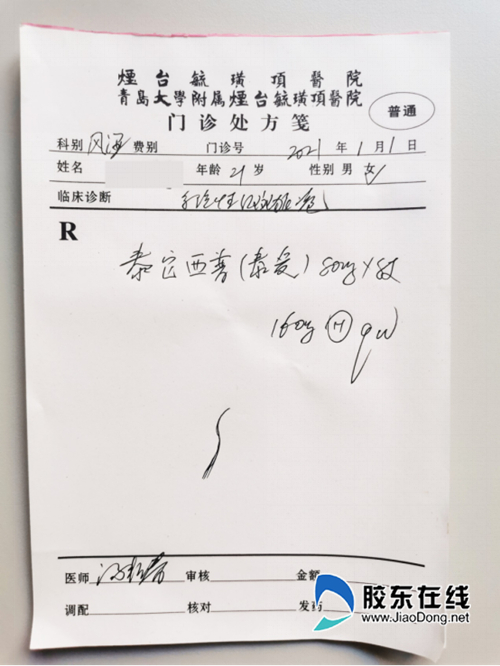 煙台毓璜頂醫院
青島大學附属煙台毓璜頂醫院
门诊处方笺
普通
科别 风湿 费别 门诊号 2021 年 1 月 1 日
姓名 年龄 21 岁 性别 男 女 ✓
临床诊断 系统性红斑狼疮
R
泰它西普(泰爱) 80mg × 8支
160mg Ⓗ qw
医师 审核 金额
调配 核对 发药
胶东在线
www.JiaoDong.net